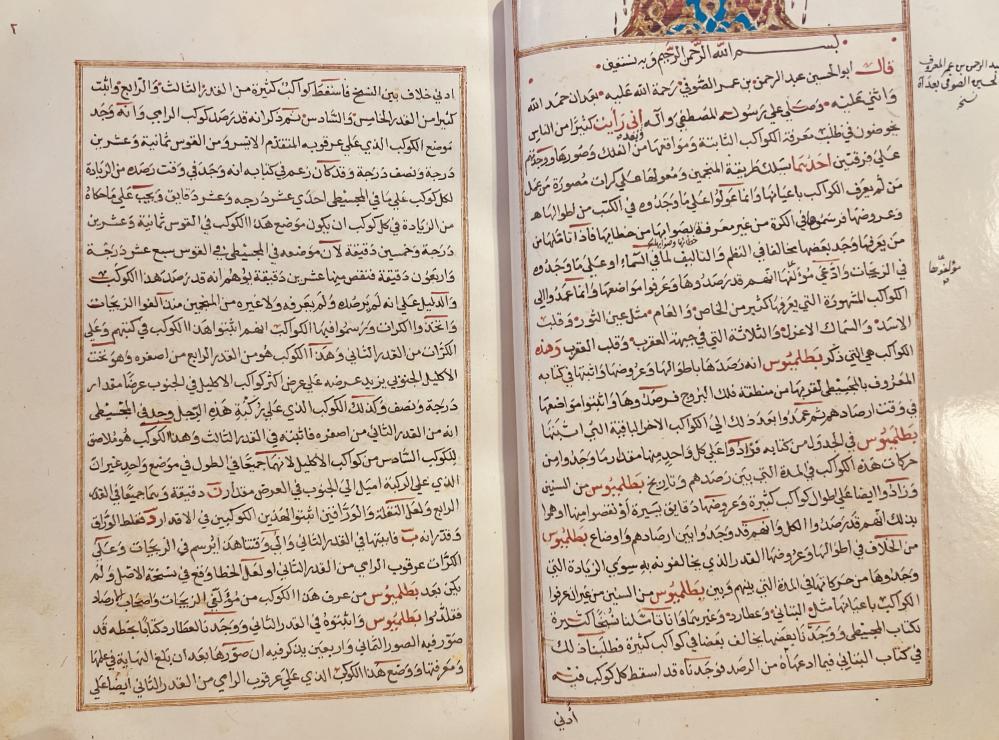 بسم الله الرحمن الرحيم وبه نستعين
قال ابو الحسين عبد الرحمن بن عمر الصوفي رحمة الله عليه بعد ان حمد الله
واثنى عليه وصلى على رسوله المصطفى وآله اني رأيت كثيرا من الناس
يخوضون في طلب معرفة الكواكب الثابتة ومواقعها من الفلك وصورها ووجدتهم
على فرقتين احديهما تسلك طريقة المنجمين ومعولها على كرات مصورة من عمل
من لم يعرف الكواكب باعيانها وانما عولوا على ما وجدوه في الكتب من اطوالها
وعروضها فرسموها في الكرة من غير معرفة بصوابها من خطائها فاذا تاملها من
من يعرفها وجد بعضها مخالفا في النظم والتاليف لما في السماء او على ما وجدوه
في الزيجات وادعى مؤلفها انهم قد رصدوها وعرفوا مواضعها وانما عمدوا الى
الكواكب المشهورة التي يعرفها كثير من الخاص والعام مثل عين الثور وقلب
الاسد والسماك الاعزل والثلاثة التي في جبهة العقرب وقلب العقرب وهذه
الكواكب هي التي ذكر بطلميوس انه رصدها باطوالها وعروضها واثبتها في كتابه
المعروف بالمجسطي لقربها من منطقة فلك البروج فرصدوها واثبتوا مواضعها
في وقت ارصادهم ثم عمدوا بعد ذلك الى الكواكب الاخر الباقية التي اثبتها
بطلميوس في الجدول من كتابه فزادوا على كل واحد منها مقدار ما وجدوا من
حركات هذه الكواكب في المدة التي بين رصدهم وتاريخ بطلميوس من السنين
وزادوا ايضا على اطوال كواكب كثيرة وعروضها دقايق يسيرة او نقصوا منها اوهموا
بذلك انهم قد رصدوا الكل وانهم قد وجدوا بين ارصادهم واوضاع بطلميوس
من الخلاف في اطوالها وعروضها القدر الذي يخالفونه به سوى الزيادة التي
وجدوها من حركاتها في المدة التي بينهم وبين بطلميوس من السنين من غير ان عرفوا
الكواكب باعيانها مثل البتاني وعطارد وغيرهما وانا تاملنا نسخا كثيرة
لكتاب المجسطي ووجدنا بعضها يخالف بعضا في كواكب كثيرة فطلبنا ذلك
في كتاب البتاني فيما ادعاه من الرصد فوجدناه قد اسقط كل كوكب فيه
أدنى
نسخ
مؤلفوها
٢
ادنى خلاف بين النسخ فاسقط كواكب كثيرة من القدر الثالث والرابع واثبت
كثيرا من القدر الخامس والسادس ثم ذكر انه قد رصد كوكب الرامي وانه وجد
موضع الكوكب الذي على عرقوبه المتقدم الايسر من القوس ثمانية وعشرين
درجة ونصف درجة وقد كان زعم في كتابه انه وجد في وقت رصده من الزيادة
لكل كوكب على ما في المجسطي احدى عشر درجه وعشر دقايق ويجب على ما حكاه
من الزيادة في كل كوكب ان يكون موضع هذا الكوكب في القوس ثمانية وعشرين
درجة وخمسين دقيقة لان موضعه في المجسطي في القوس سبع عشر درجة
واربعون دقيقة فنقص منها عشرين دقيقة ليوهم انه قد رصد هذا الكوكب
والدليل على انه لم يرصده ولم يعرفه ولا غيره من المنجمين منذ الفوا الزيجات
واتخذوا الكرات ورسموا فيها الكواكب انهم اثبتوا هذا الكوكب في كتبهم وعلى
الكرات من القدر الثاني وهذا الكوكب هو من القدر الرابع من اصغره وهو تحت
الاكليل الجنوبي يزيد عرضه على عرض اكثر كواكب الاكليل في الجنوب عرضا مقدار
درجة ونصف وكذلك الكوكب الذي على ركبة هذه الرجل وجد في المجسطي
انه من القدر الثاني من اصغره فاثبته في القدر الثالث وهذا الكوكب هو ملاصق
للكوكب السادس من كواكب الاكليل لانهما جميعا في الطول في موضع واحد غير ان
الذي على الركبة اميل الى الجنوب في العرض مقدار دقيقة وهما جميعا في القدر
الرابع ولعل النقلة والوراقين اثبتوا لهذين الكوكبين في الاقدار فغلط الوراق
وقدر انه ب فاثبتها في القدر الثاني والى وقتنا هذا يرسم في الزيجات وعلى
الكرات عرقوب الرامي من القدر الثاني او لعل الخطا وقع في نسخة الاصل ولم
يكن بعد بطلميوس من عرف هذا الكوكب من مؤلفي الزيجات واصحاب الارصاد
فقلدوا بطلميوس واثبتوه في القدر الثاني ووجدنا لعطارد كتابا بخطه قد
صور فيه الصور الثماني واربعين يذكر فيه ان صورها بعد ان بلغ النهاية في علمها
ومعرفتها ووضع هذا الكوكب الذي على عرقوب الرامي من القدر الثاني ايضا على